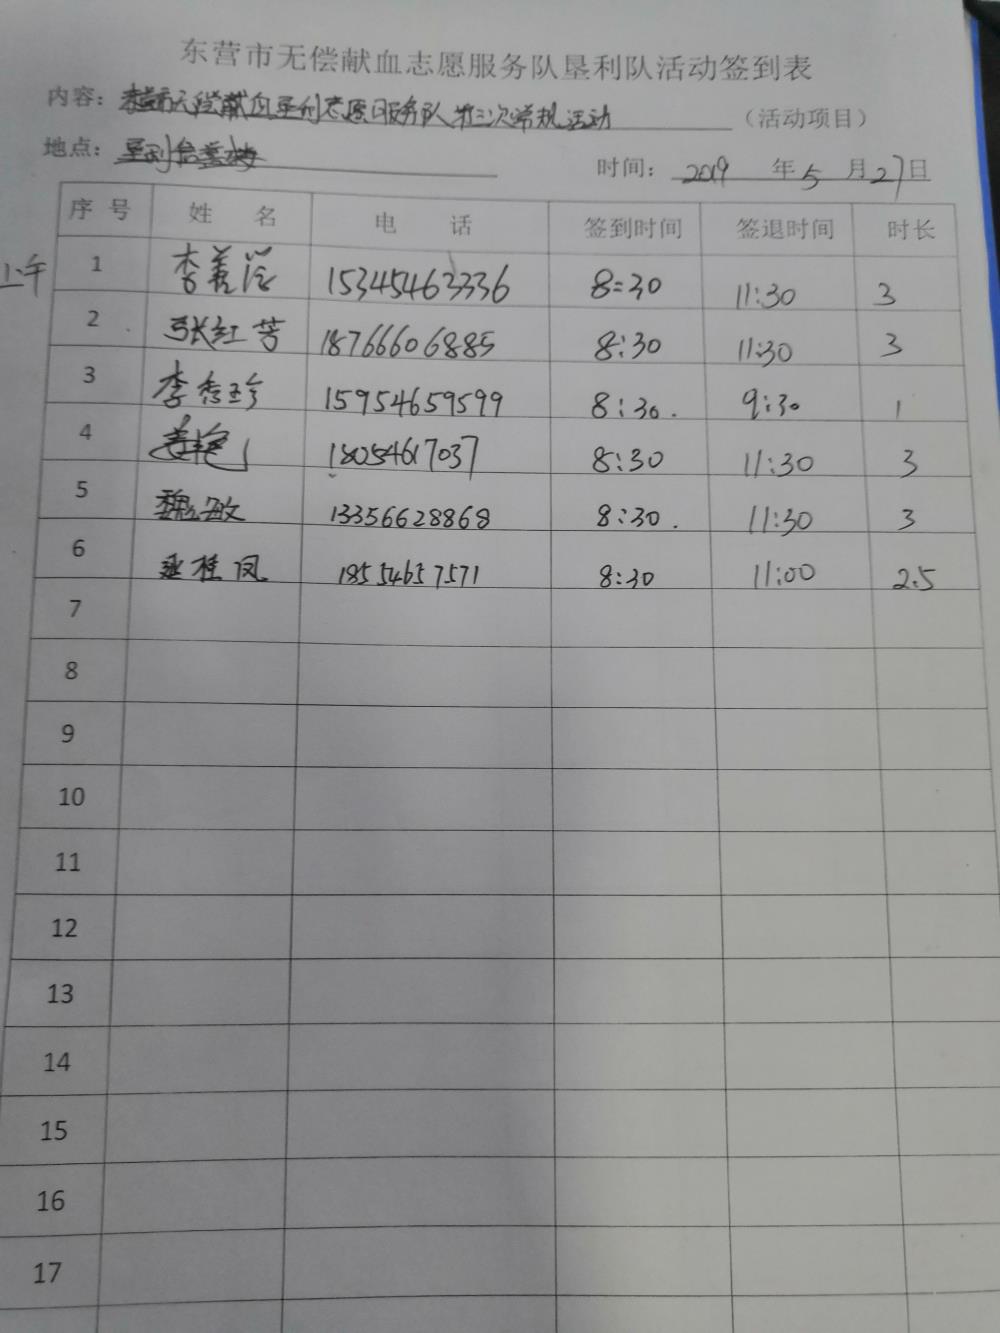 东营市无偿献血志愿服务队垦利队活动签到表
内容：东营市无偿献血垦利志愿服务队第三次常规活动（活动项目）
地点：垦利 时间：2019年5月27日
序号 姓名 电话 签到时间 签退时间 时长
上午 1 李善 15345463336 8:30 11:30 3
2 张红芳 18766606885 8:30 11:30 3
3 李秀珍 15954659599 8:30. 9:30 1
4 姜艳 18054617037 8:30 11:30 3
5 魏敏 13356628868 8:30. 11:30 3
6 桂凤 18554657571 8:30 11:00 2.5
7
8
9
10
11
12
13
14
15
16
17